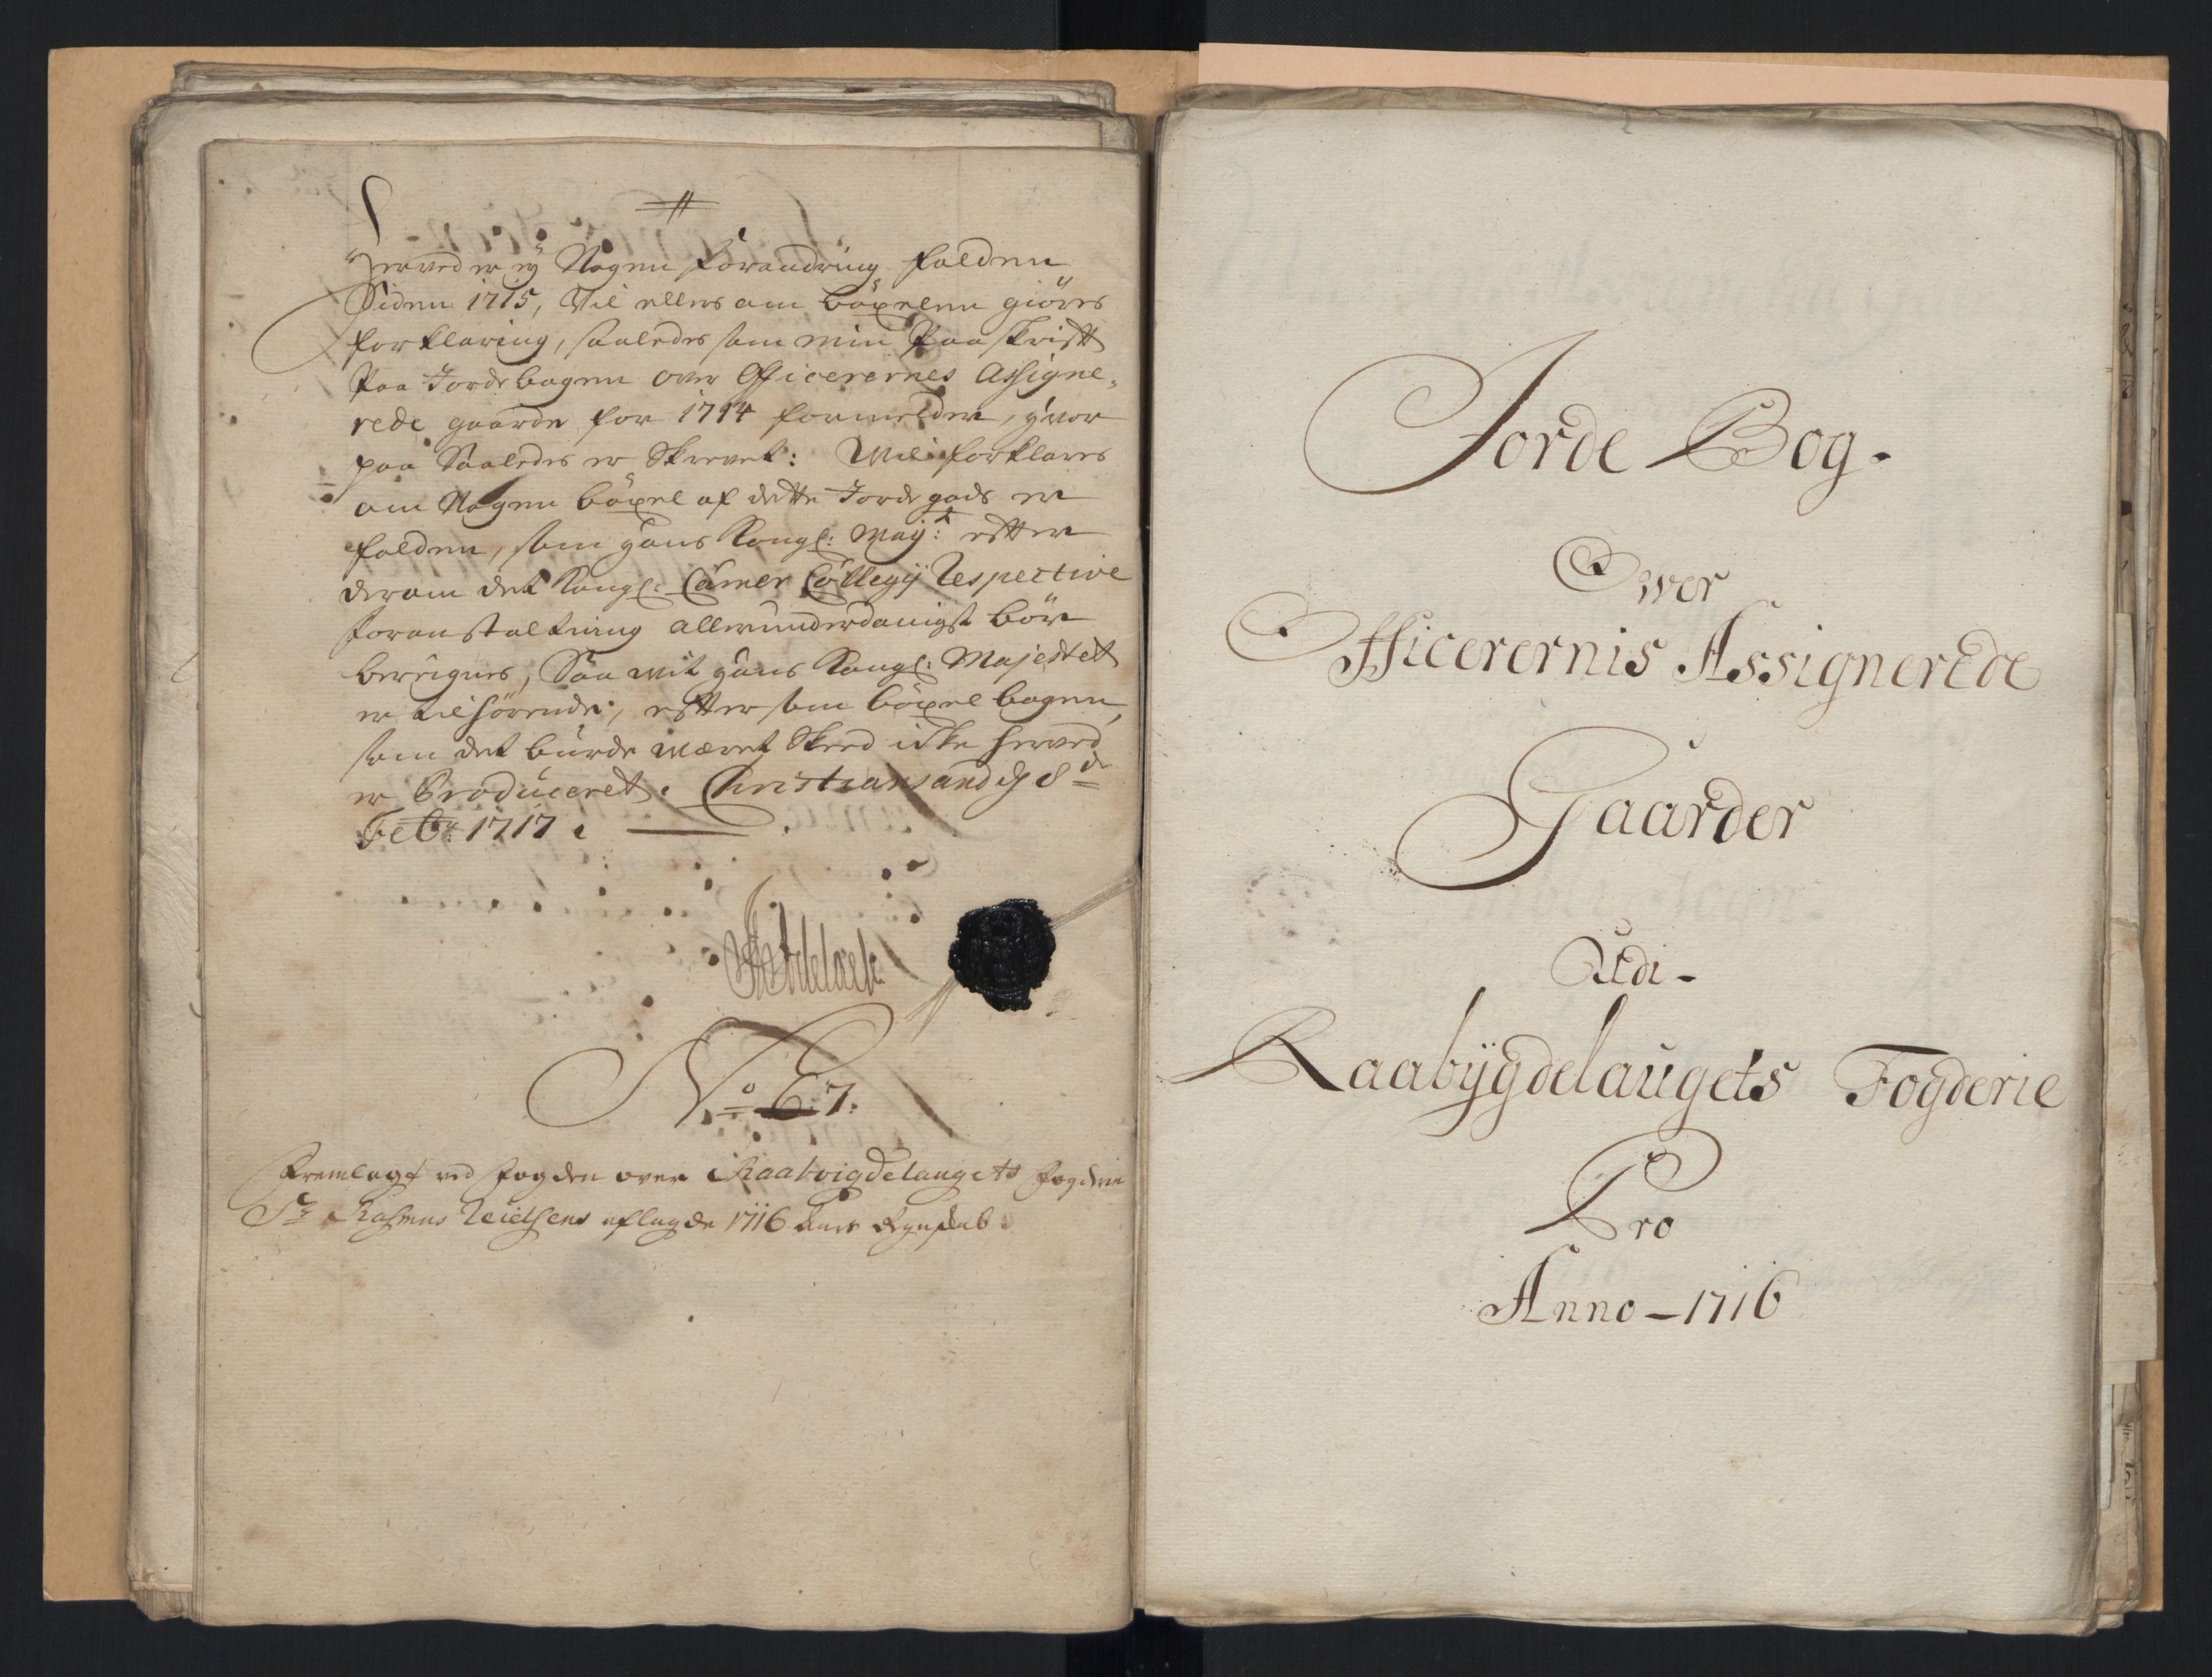 Herved er ey Nogen forandring falden
Siden 1715, Vil ellers om böxelen giöres
forklaring, saaledes som min Paaskrifft
Paa Jordebogen over Officerernes Assigne-
rede gaarde for 1714 formelder, hvor
paa Saaledes er Skrevet: Vil forklares
om Nogen böxel af dette Jordegods er
falden, som hans Kongl: May:t effter
derom det Kongl: Camer Collegij Respective
foranstaltning allerunderdanigst bör
beregnes, Saa vit hans Kongl: Majestet
er tilhörende, effter som böxelbogen,
som det burde været Skeed icke herved
er Produceret. Christiansand d 8de
Febr: 1717.
No E: 7:
Fremlagt ved fogden over Raaböigdelaugets fogderie
Sr Rasmus Nielsens aflagde 1716 Aars Regnskab
Jorde Bog.
Over
Officerernis Assignerede
Gaarder
Udi
Raabÿgdelaugets Fogderie
Pro
Anno 1716